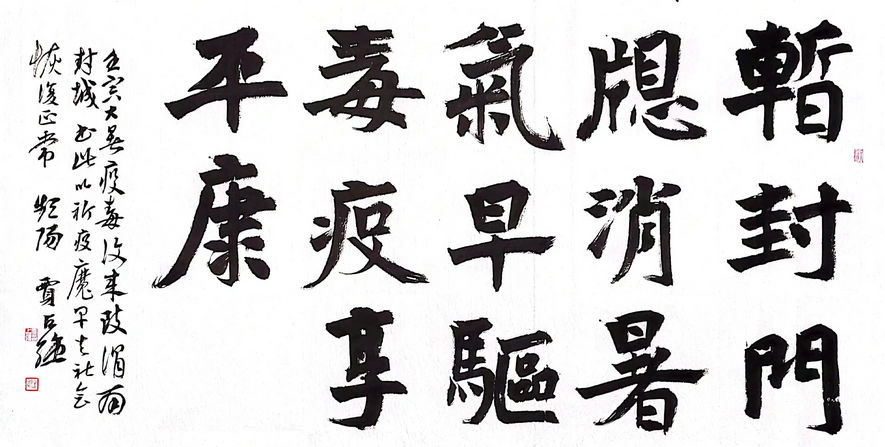 暫封門
牕消暑
氣早驅
毒疫享
平康
壬寅大暑疫毒复来致渭南
封城书此以祈疫魔早去社会
恢復正常 频阳 賈占强